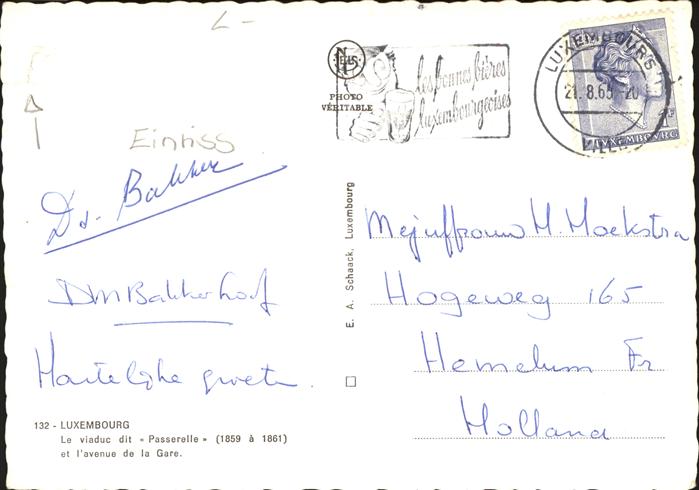 L -
Einriss
NELS
PHOTO
VÉRITABLE
les bonnes bières
luxembourgeoises
LUXEMBOURG
21.8.65-20
LUXEMBOURG
Ds. Bakker
DM Bakkerhoof
Hartelijke groeten.
132 - LUXEMBOURG
Le viaduc dit « Passerelle » (1859 à 1861)
et l'avenue de la Gare.
E. A. Schaack, Luxembourg
Mejuffrouw H. Hoekstra
Hogeweg 165
Hemelum Fr
Holland